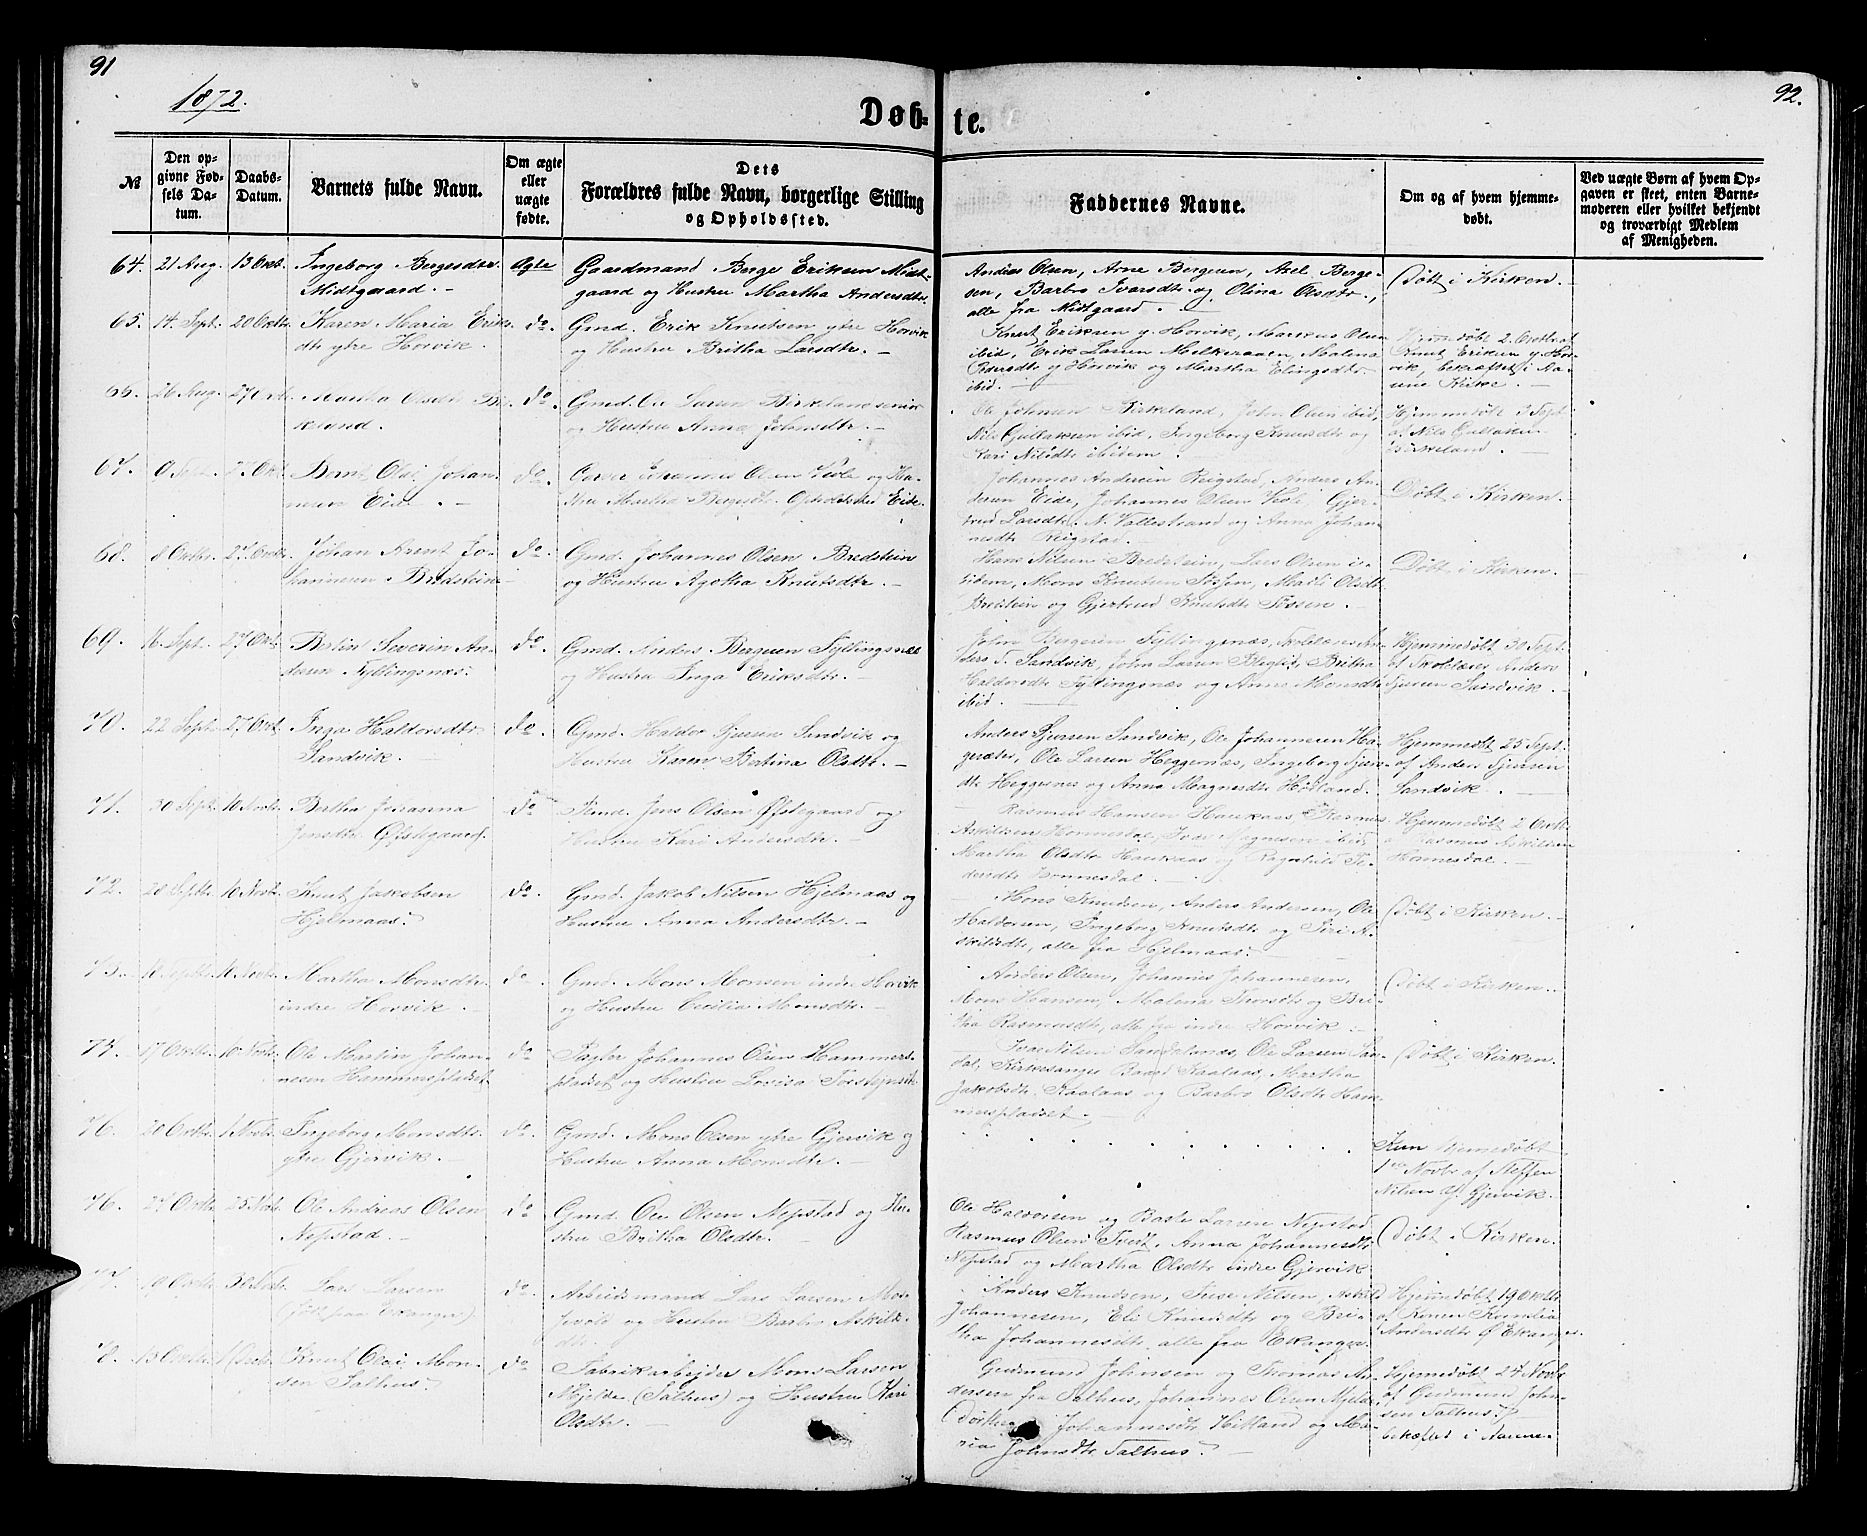 91
92.
1872.
Døb-
te.
№
Den op-
givne Fød-
sels Da-
tum.
Daabs-
Datum.
Barnets fulde Navn.
Om ægte
eller
uægte
fødte.
Dets
Forældres fulde Navn, borgerlige Stilling
og Opholdssted.
Faddernes Navne.
Om og af hvem hjemme-
døbt.
Ved uægte Børn af hvem Op-
gaven er skeet, enten Barne-
moderen eller hvilket bekjendt
og troværdigt Medlem
af Menigheden.
64. 21 Aug. 13 Okt. Ingeborg Bergesdtr.
Midtgaard. -
Ægte
Gaardmand Berge Eriksen Midt-
gaard og Hustru Martha Andersdtr.
Anders Olsen, Arne Bergesen, Axel Berge-
sen, Barbro Ivarsdtr. og Olina Olsdtr.,
alle fra Midtgaard. -
Døbt i Kirken. -
65. 14. Sept. 20 Oktr. Karen Maria Eriks-
dtr ytre Horvik.
do.
Gmd. Erik Knutsen ytre Horvik
og Hustru Britha Larsdtr. -
Knut Eriksen y. Horvik, Markus Olsen
ibid, Erik Larsen Melkeraaen, Malena
y Horvik og Martha Elingsdtr
ibid. -
Hjemmedøbt 2 Oktbr af
Knut Eriksen y. Hor-
vik, bekræftet i Ha-
mre Kirke. -
66. 26 Aug. 27 Okt. Martha Olsdtr Bir-
keland.
do.
Gmd. Ole Larsen Birkeland senior
og Hustru Anna Johnsdtr. -
Ole Johnsen Birkeland, John Olsen ibid,
Nils Gullaksen ibid, Ingeborg Knutsdtr og
Kari Nilsdtr ibidem. -
Hjemmedøbt 3 Sept.
af Nils Gullaksen
Birkeland. -
67. Sept. 27 Okt. Bernt Olai Johan-
nesen Eide. -
do.
Johannes Olsen og Hu-
stru Martha Bergesdtr. Opholdssted Eide.
Johannes Andersen Reigstad, Anders An-
dersen Eide, Johannes Olsen Gjer-
trud Larsdtr. N. Vallestrand og Anna Johan-
nesdtr Reigstad. -
Døbt i Kirken. -
68. 8 Oktbr. 27 Oktr. Johan Arent Jo-
hannesen Bredstein. -
do.
Gmd. Johannes Olsen Bredstein
og Hustru Agatha Knutsdtr. -
Hans Nilsen Bredstein, Lars Olsen i-
bidem, Mons Knutsen Tossen, Madli Olsdtr
Bredstein og Gjertrud Knutsdtr Tossen. -
Døbt i Kirken. -
69. 16 Sept. 27 Okt. Bertin Severin An-
dersen Fyllingsnæs.
do.
Gmd. Anders Bergesen Fyllingsnæs
og Hustru Inga Eriksdtr. -
John Bergesen Fyllingsnæs, Skolelærer An-
ders T. Sandvik, John Larsen Britha
Haldorsdtr Fyllingsnæs og Anna Monsdtr
ibid. -
Hjemmedøbt 30 Sept.
af Skolelærer Anders
Sjursen Sandvik. -
70. 22 Sept. 27 Okt. Inga Haldorsdtr
Sandvik. -
do.
Gmd. Haldor Sjursen Sandvik og
Hustru Karen Bertina Olsdtr. -
Anders Sjursen Sandvik, Ole Johannesen Ha-
gesæter, Ole Larsen Heggernæs, Ingeborg Sjurs-
dtr. Heggernæs og Anna Magnesdtr Hodland.
Hjemmedbt 25 Sept.
af Anders Sjursen
Sandvik. -
71. 20 Sept. 10 Novbr. Brtha Johanna
Jensdtr Øfstegaard.
do.
Jens Olsen Øfstegaard og
Hustru Kari Andersdtr. -
Rasmus Hansen Haukaas, Rasmus
Askildsen Honnesdal, Ivar Magnesen ibid,
Martha Olsdtr Haukaas og Ragnhild
Honnesdal. -
Hjemmedøbt 2 Oktbr.
af Rasmus Askildsen
Honnesdal. -
72. 28 Septbr. 10 Novbr. Knut Jakobsen
Hjelmaas.
do.
Gmd. Jakob Nilsen Hjelmaas og
Hustru Anna Andersdtr. -
Mons Knudsen, Anders Andersen, Ole
Haldorsen, Ingeborg Knutsdtr og Siri A-
skildsdtr, alle fra Hjelmaas.
Døbt i Kirken. -
73. 18 Septbr. Novbr. Martha Monsdtr.
indre Horvik. -
do.
Gmd. Mons Monsen indre Horvik
og Hustru Cecilia Monsdtr. -
Anders Olsen, Johannes Johannesen,
Mons Hansen, Malena Thorsdtr og Bri-
tha Rasmusdtr, alle fra indre Horvik. -
Døbt i Kirken. -
74. 17 Oktbr. 10 Novbr. Ole Martin Johan-
nesen Hammerspladset.
do.
Johannes Olsen Hammers-
pladset og Hustru Lovisa
Ivar Nilsen Ole Larsen
dal, Kirkesanger Baard Kaalaas, Martha
Jakobsdtr. Kaalaas og Barbro Olsdtr Ham-
merspladset. -
Døbt i Kirken.
76. 20 Oktbr. 1 Novbr. Ingeborg Monsdtr.
ytre Gjervik. -
do.
Gmd. Mons Olsen ytre Gjervik og
Hustru Anna Monsdtr. -
Kun hjemmedøbt
1ste Novbr af Steffen
Nilsen y. Gjervik.
76. 24 Oktbr. 25 Novb. Ole Andreas Olsen
Nepstad. -
do.
Gmd. Ole Olsen Nepstad og Hu-
stru Britha Olsdtr. -
Ole Haldorsen og Baste Larsen Nepstad,
Rasmus Olsen Tveit, Anna Johannesdtr
Nepstad og Martha Olsdtr indre Gjervik
Døbt i Kirken.
77. 19 Oktbr. 30 Novb. Lars Larsen
(født paa Ekanger)
do.
Arbeidsmand Lars Larsen
og Hustru Barbro Askilds-
dtr. -
Anders Knudsen, Nilsen, Askild
Johannesen, Eli Knudsdtr og Bri-
tha Johannesdtr alle fra Ekanger.
Hjemmedøbt 19 Oktbr
af Karen Kornelia
Andersdtr Ø Ekanger.
78. 13 Oktbr. 1 Decbr. Knut Olai Mon-
sen Salhus.
do.
Fabrikarbejder Mons Larsen
Mjelde (Salhus) og Hustru Kari
Olsdtr. -
Gudmund Johnsen og Thomas An-
dersen fra Salhus, Johannes Olsen Mjelde,
Dorthea Johannesdtr Hitland og Ma-
ria Johnsdtr Salhus. -
Hjemmedøbt 24 Novb
af Gudmund John-
sen Salhus.
bekræftet i Hamre. -